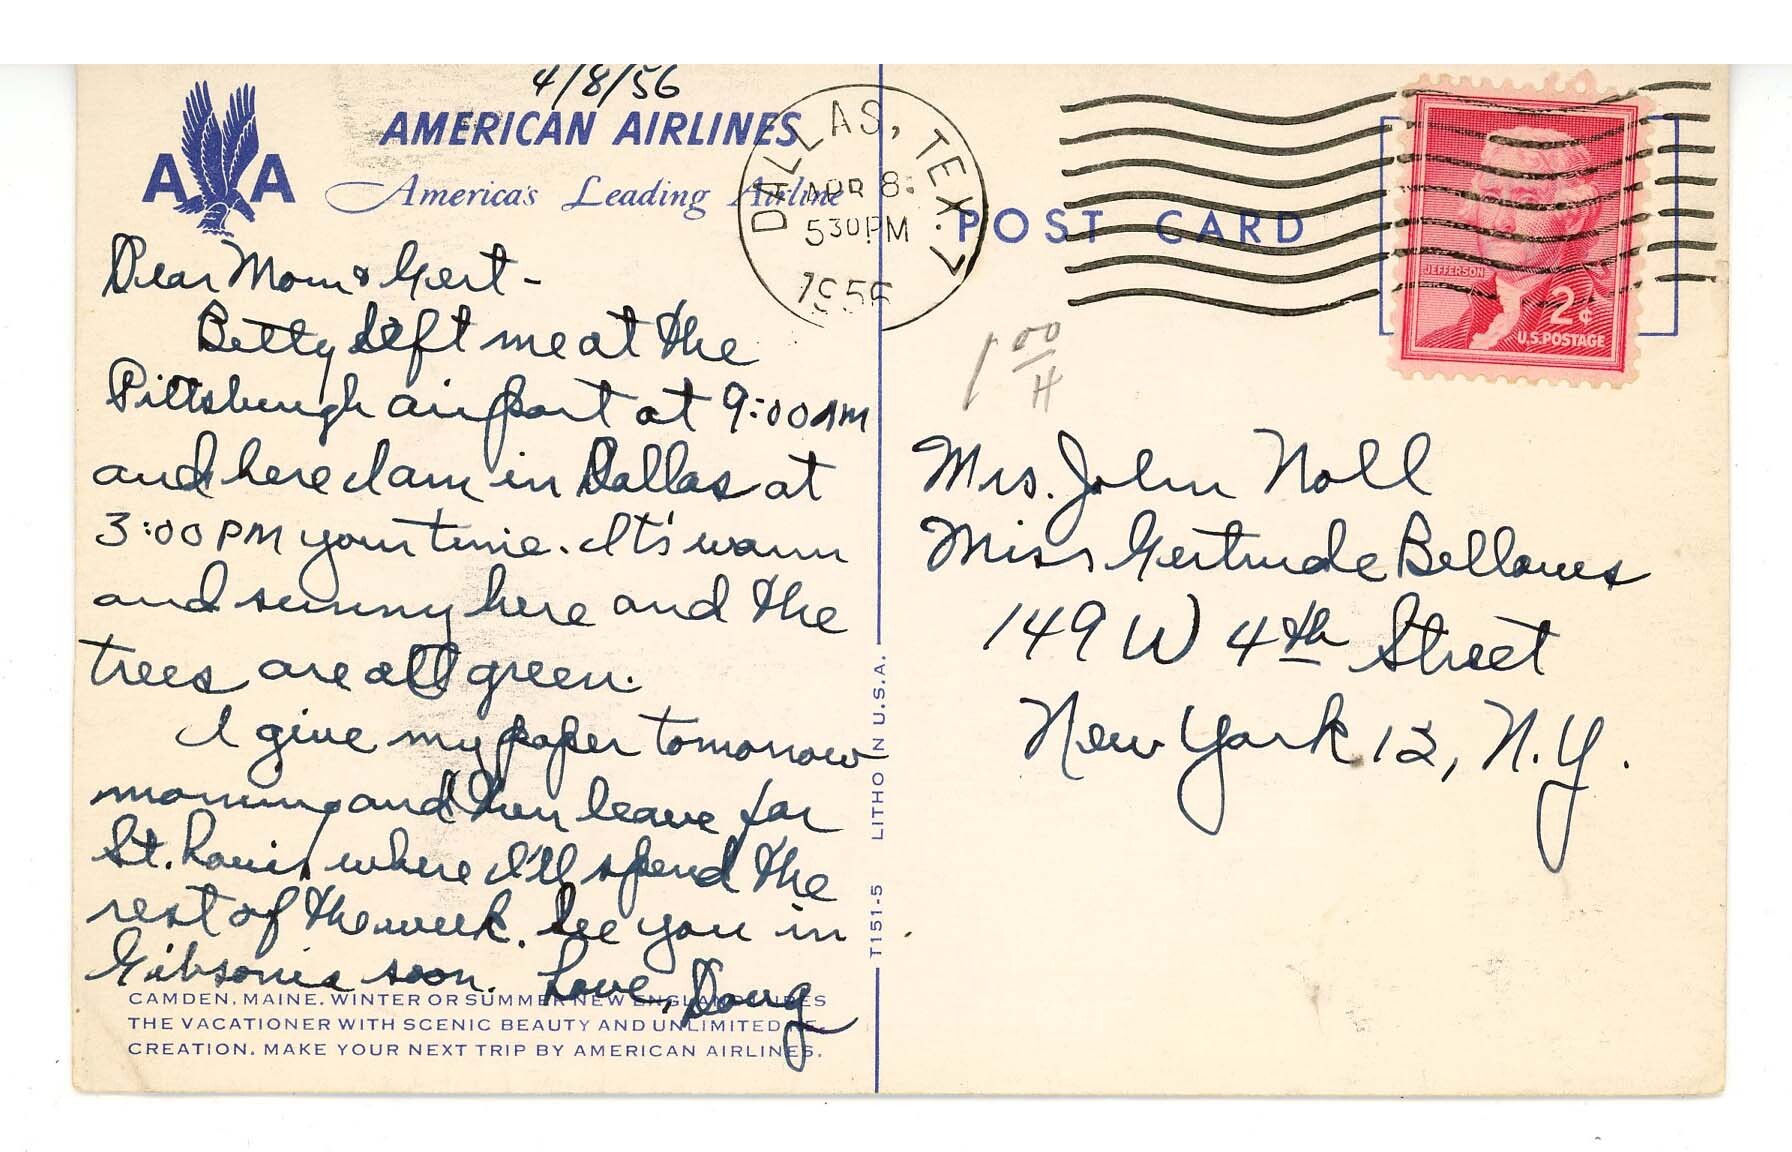 4/8/56
AMERICAN AIRLINES
A A
America's Leading Airline
Dear Mom & Gert -
Betty left me at the
Pittsburgh airport at 9:00 AM
and here I am in Dallas at
3:00 PM your time. It's warm
and sunny here and the
trees are all green.
I give my paper tomorrow
morning and then leave for
St. Louis where I'll spend the
rest of the week. See you in
Gibsonia soon. Love, Doug
CAMDEN, MAINE. WINTER OR SUMMER NEW ENGLAND LURES
THE VACATIONER WITH SCENIC BEAUTY AND UNLIMITED RE-
CREATION. MAKE YOUR NEXT TRIP BY AMERICAN AIRLINES.
T151-5 LITHO IN U.S.A.
DALLAS, TEX. 7
APR 8
530 PM
1956
POST CARD
JEFFERSON
2¢
U.S. POSTAGE
1 00
H
Mrs. John Noll
Miss Gertrude Bellows
149 W 4th Street
New York 12, N.Y.